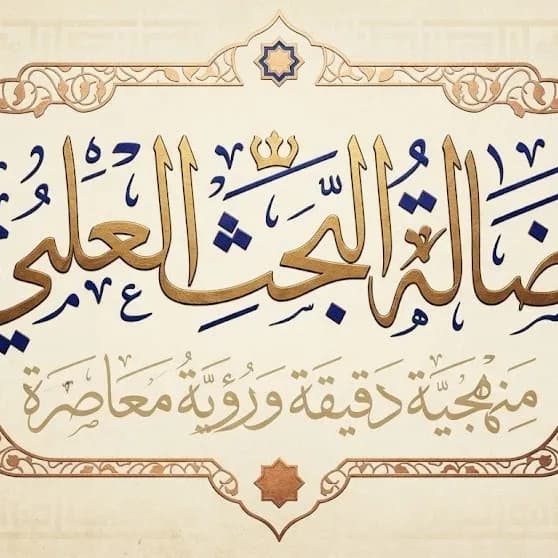 ضَالةُ البَّحَثِ العلمُي
مَنِهْجيَّة دَقِيقَة وَرُؤيَّةُ مَعَاصِرَة